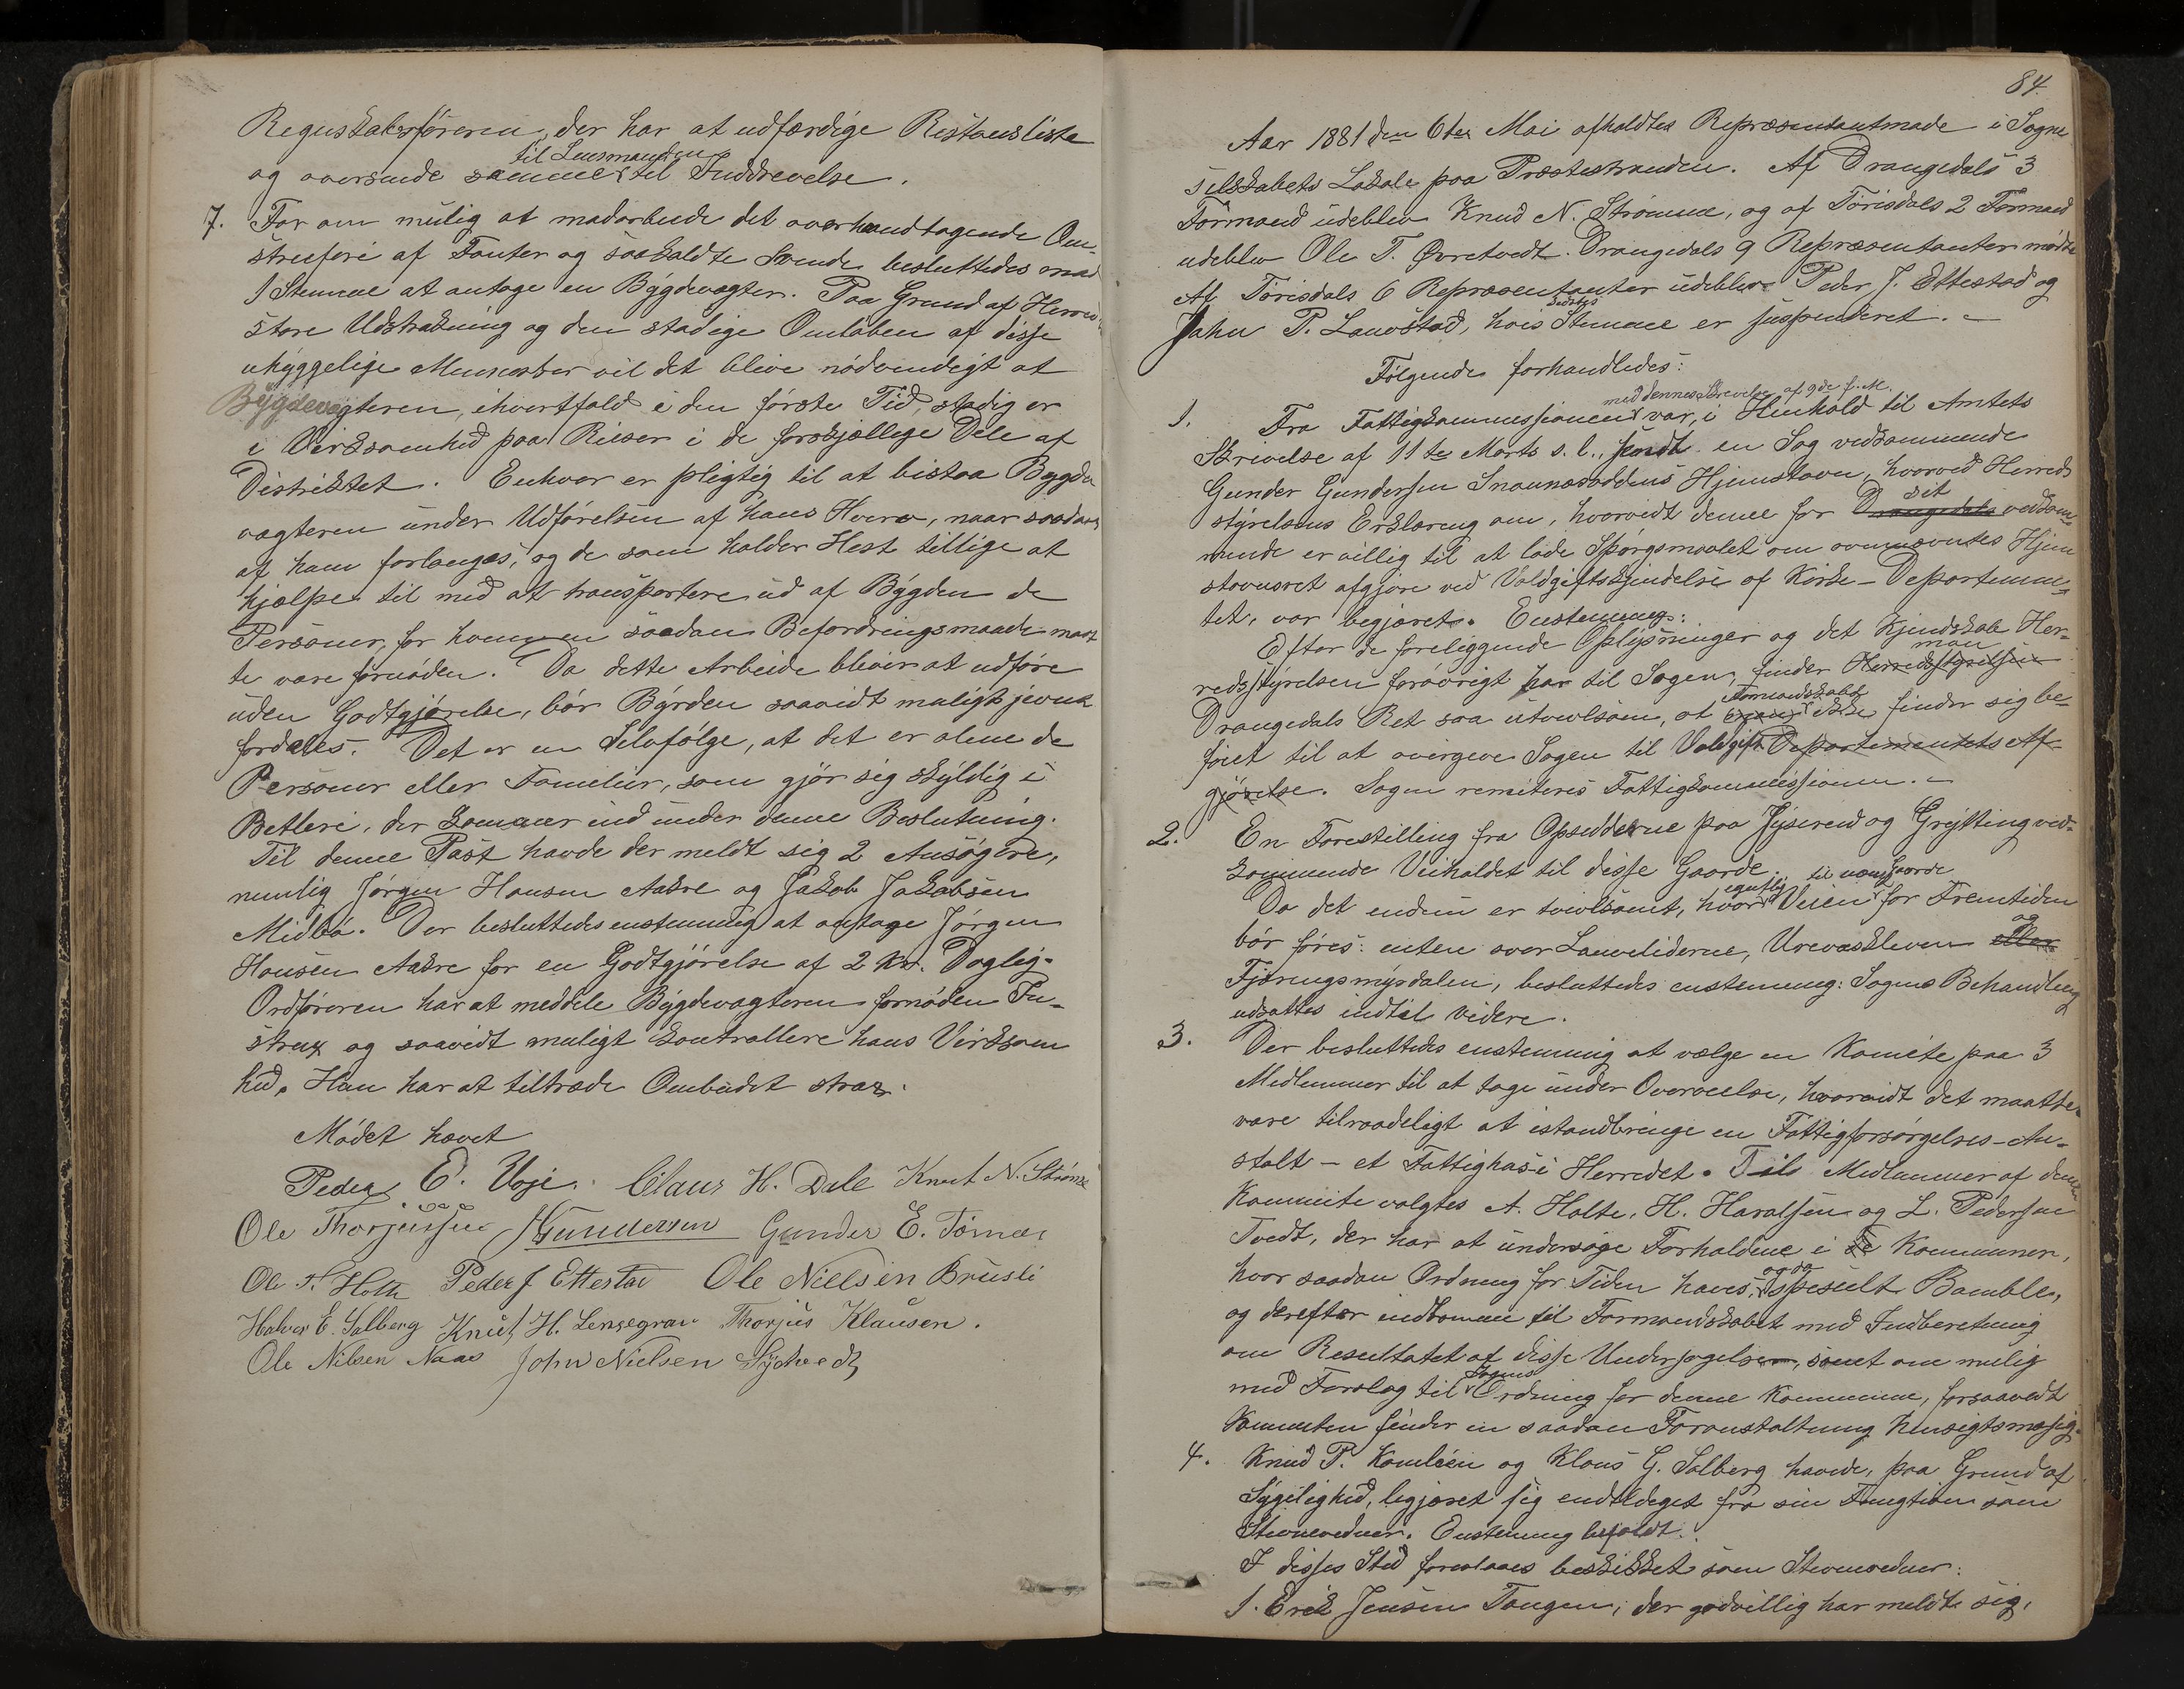 Regnskabsføreren, der har at udfærdige Restanseliste
og oversende samme til Lensmanden til Inddrevelse.
7. For om mulig at modarbeide det overhaandtagende Om-
streiferi af Fanter og saakaldte Svende besluttedes mod
1 Stemme at antage en Bygdevægter. Paa Grund af Herred
store Udstrækning og den stadige Omløben af disse
uhyggelige Mennesker vil det blive nødvendigt at
Bygdevægteren, ihvertfald i den første Tid, stadig er
i Virksomhed paa Reiser i de forskjællige Dele af
Distriktet. Enhver er pligtig til at bistaa Bygde
vægteren under Udførelsen af hans Hverv, naar saadant
af ham forlanges, og de som holder Hest tillige at
hjælpe til med at transportere ud af Bygden de
Personer, for hvem en saadan Befordringsmaade maat
te være fornøden. Da dette Arbeide bliver at udføre
uden Godtgjørelse, bør Byrden saavidt muligt jevnt
fordeles. Det er en Selvfølge, at det er alene de
Personer eller Familier, som gjør sig skyldig i
Betleri, der kommer ind under denne Beslutning.
Til denne Post havde der meldt sig 2 Ansøgere,
nemlig Jørgen Hansen Aakre og Jakob Jakobsen
Midbø. Der besluttedes enstemmig at antage Jørgen
Hansen Aakre for en Godtgjørelse af 2 Kr. Daglig.
Ordføreren har at meddele Bygdevægteren fornøden In-
strux og saavidt muligt kontrollere hans Virksom
hed. Han har at tiltræde Ombudet strax.
Mødet hævet
Peder E. Voje. Claus H. Dale Knut N. Strømme
Ole Thorjussen JGundersen Gunder E. Tørnes
Ole T. Holte Peder J Ettestad Ole Nielsen Brusli
Halvor E. Solberg Knut H. Lensegrav Thorjus Klausen.
Ole Nilsen Naas John Nielsen Sydtvedt
84.
Aar 1881 den 6te Mai afholdtes Repræsentantmøde i Sogne
selskabets Lokale paa Præstestranden. Af Drangedals 3
Formænd udeblev Knud N. Strømme, og af Tørisdals 2 Formænd
udeblev Ole T. Øvretvedt. Drangedals 9 Repræsentanter mødte
Af Tørisdals 6 Repræsentanter udeblev Peder J. Ettestad og
John P. Lauvstad, hvis sidstes Stemme er suspenderet. –
Følgende forhandledes:
1. Fra Fattigkommissionen med dennes Skrivelse af 9de f. M. var, i Henhold til Amtets
Skrivelse af 11te Marts s. l., sendt en Sag vedkommende
Gunder Gundersen Snaunæsoddens Hjemstavn, hvorved Herreds
styrelsens Erklæring om, hvorvidt denne for Drangedals sit vedkom-
mende er villig til at lade Spørgsmaalet om ovennævntes Hjem
stavnsret afgjøre ved Voldgiftskjendelse af Kirke-Departemen-
tet, var begjæret. Enstemmig:
Efter de foreliggende Oplysninger og det Kjendskab Her-
redsstyrelsen forøvrigt har til Sagen, finder Herredsstyrelsen man
Drangedals Ret saa utvivlsom, at man Formandskabet ikke finder sig be-
føiet til at overgive Sagen til Voldgift Departementets Af-
gjørelse. Sagen remiteres Fattigkommissionen. –
2. En Forestilling fra Opsidderne paa Jyserend og Grytting ved-
kommende Veiholdet til disse Gaarde.
Da det endnu er tvivlsomt, hvor egentlig Veien til nævnte Gaarde for Fremtiden
bør føres: enten over Lauveliderne, Urevaskleven eller og
Fjærengsmyrdalen, besluttedes enstemmig: Sagens Behandling
udsættes indtil videre.
3. Der besluttedes enstemmig at vælge en Komite paa 3
Medlemmer til at tage under Overveielse, hvorvidt det maatte
være tilraadeligt at istandbringe en Fattigforsørgelses-An-
stalt – et Fattighus i Herredet. Til Medlemmer af denne
Kommite valgtes A. Holte, H. Haraldsen og L. Pedersen
Tvedt, der har at undersøge Forholdene i de Kommuner,
hvor saadan Ordning for Tiden haves, og da specielt Bamble,
og derefter indkomme til Formandskabet med Indberetning
om Resultatet af disse Undersøgelser, samt om mulig
med Forslag til Sagens Ordning for denne Kommune, forsaavidt
Kommiteen finder en saadan Foranstaltning hensigtsmæsig.
4. Knud P. Komleien og Klaus G. Solberg havde, paa Grund af
Sygelighed, begjæret sig entlediget fra sin Fungtion som
Stevnevidner. Enstemmig bifaldt.
I disses Sted foreslaaes beskikket som Stevnevidner:
1. Erik Jensen Tangen, der godvillig har meldt sig,